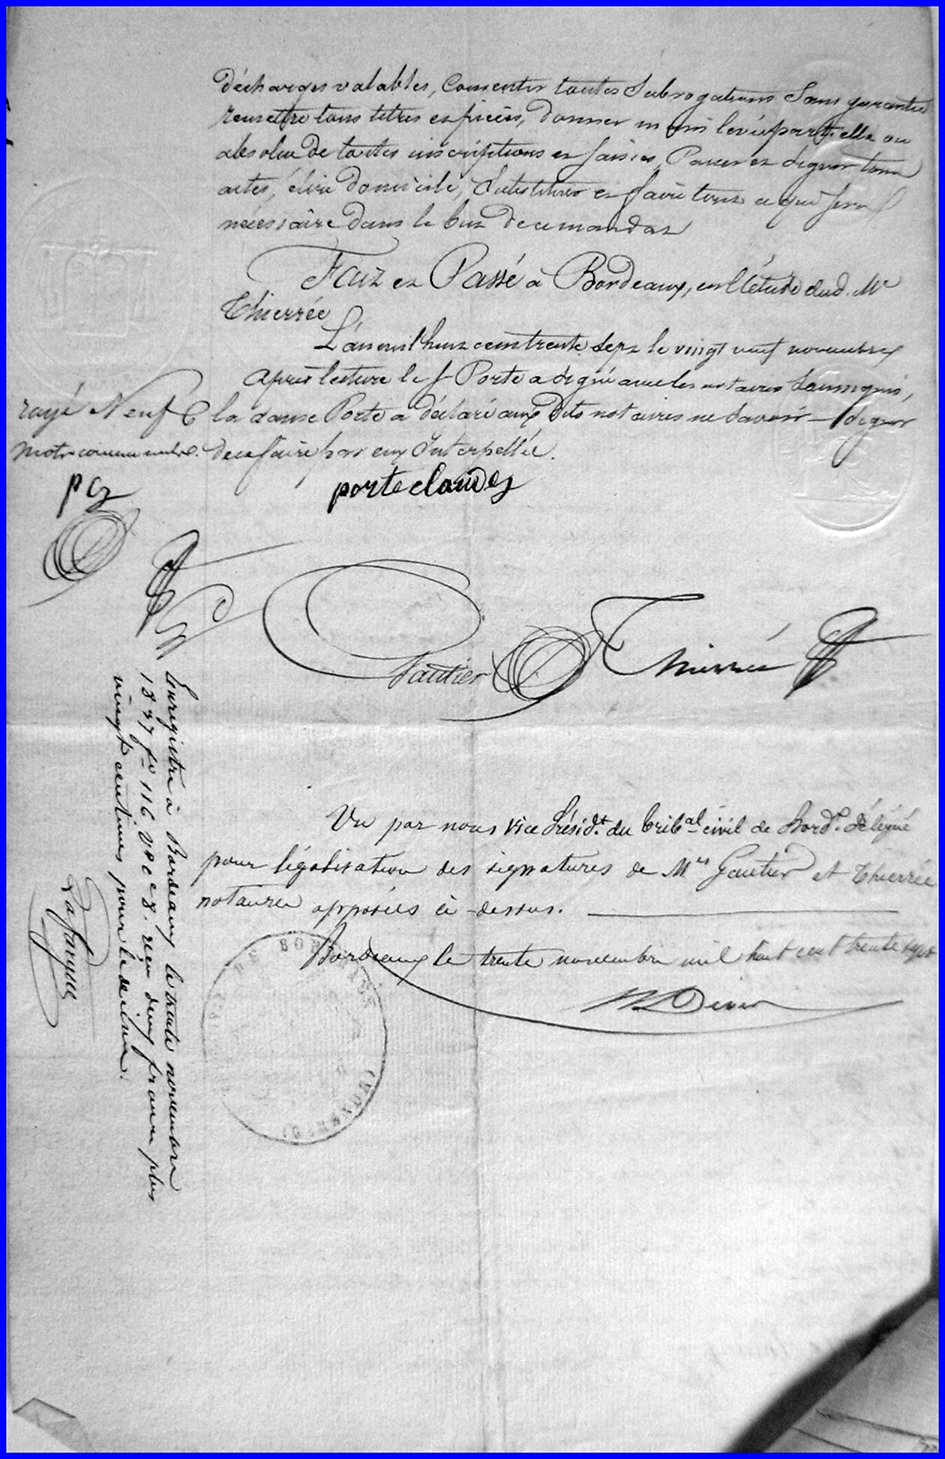 décharges valables, Consentir toutes Subrogations Sans garantie
remettre tous titres et pièces, donner main levée partielle ou
absolue de toutes inscriptions et saisies, Passer et signer tous
actes, élire Domicile, Substituer et faire tout ce que sera
nécessaire dans le but de ce mandat
Fait et Passé à Bordeaux, en l'étude dud. Me
Thierrée
L'an mil huit cent trente sept le vingt neuf novembre
Après lecture le s. Porte a signé avec les notaires Soussignés,
la dame Porte a déclaré aux Dits notaires ne Savoir signer
de ce faire par eux Interpellée.
rayé Neuf
mots comme nuls.
pcz
porteclaudez
Gautier Thierrée
Vu par nous Vice Présidt. du tribal civil de Bordx. délégué
pour légalisation des signatures de Mes Gautier et Thierrée
notaires apposées ci-dessus.
Bordeaux le trente novembre mil huit cent trente sept
DE BORDEAUX
(GIRONDE)
Enregistré à Bordeaux le trente novembre
1837 fo 116 Vo c 8. reçu deux francs plus
vingt centimes pour le décime.
Lafargue